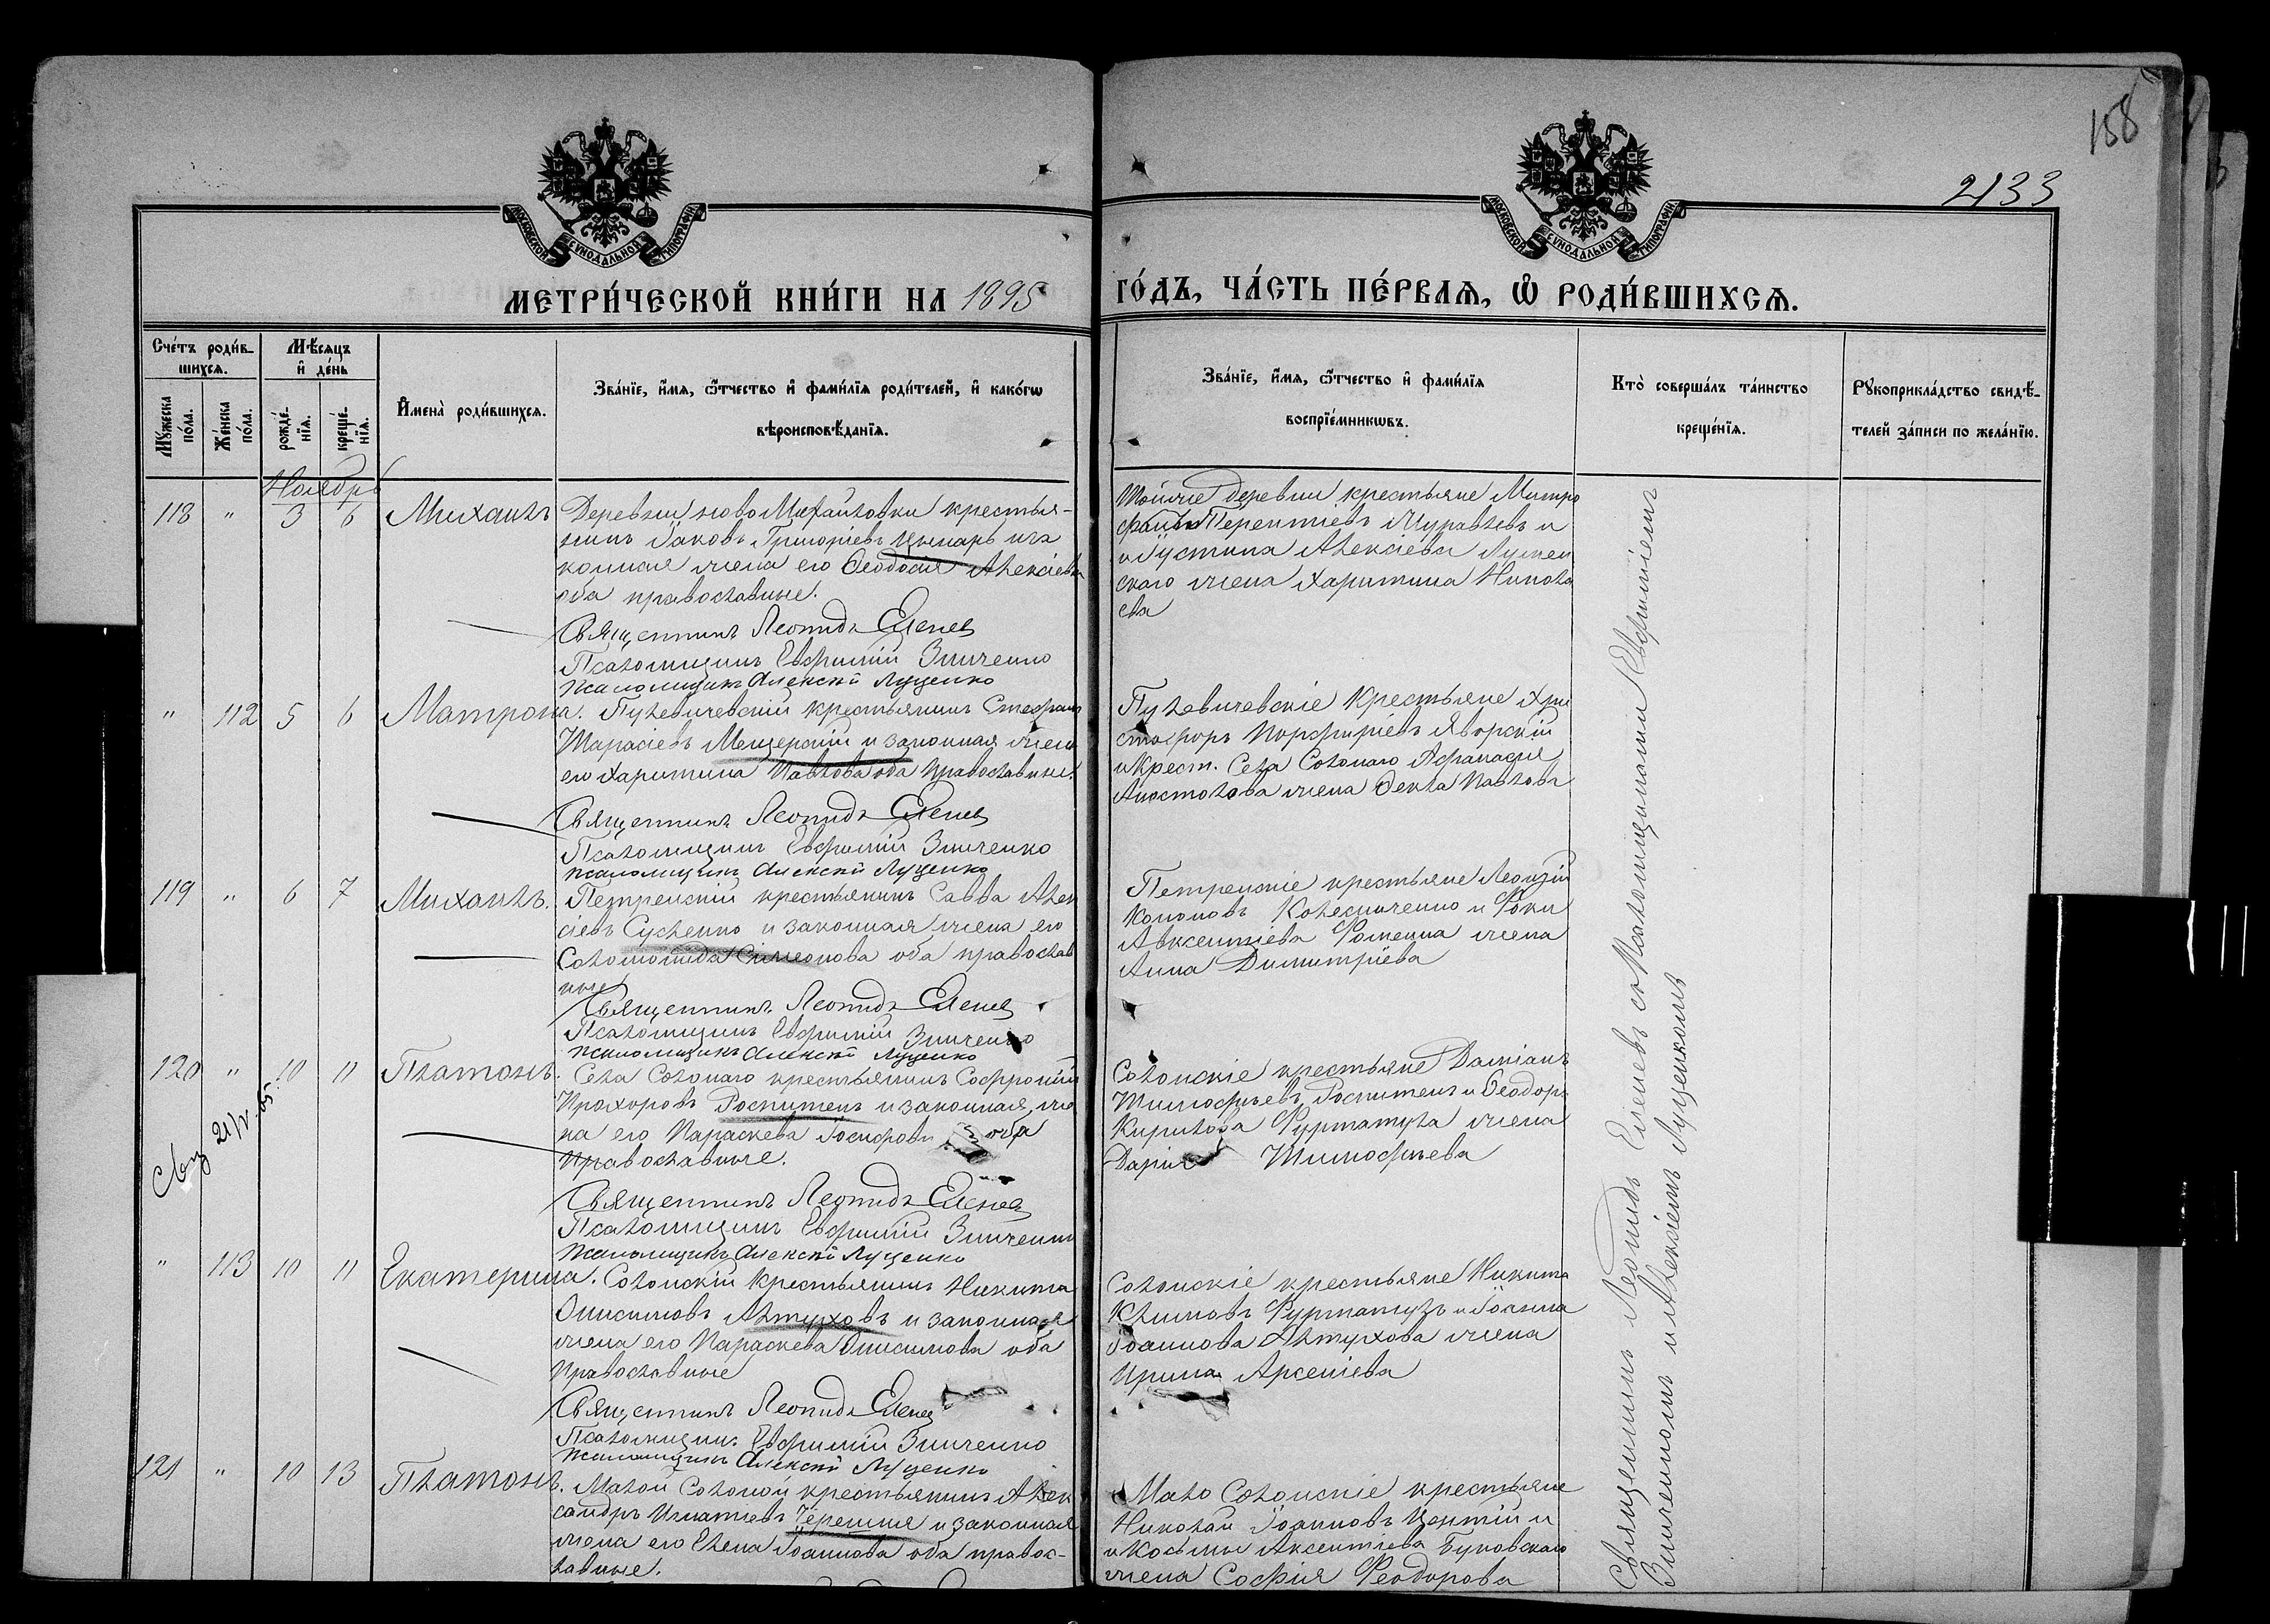 158
2133
МОСКОВСКОЙ СѴНОДАЛЬНОЙ ТИПОГРАФІИ
МОСКОВСКОЙ СѴНОДАЛЬНОЙ ТИПОГРАФІИ
МЕТРИ́ЧЕСКОЙ КНИ́ГИ НА 1895
ГО́ДЪ, ЧА́СТЬ ПЕ́РВАѦ, Ѡ҆ РОДИ́ВШИХСѦ.
Сче́тъ роди́в-
шихсѧ.
Мѣ́сяцъ
и҆ де́нь
Мꙋ́жеска по́ла.
Же́нска по́ла.
рожде́-нїѧ.
креще́-нїѧ.
И҆мена̀ роди́вшихсѧ.
Зва́нїе, и҆́мѧ, ѻ҆́тчество и҆ фами́лїѧ роди́телей, и҆ како́гѡ
вѣроисповѣ́данїѧ.
Зва́нїе, и҆́мѧ, ѻ҆́тчество и҆ фами́лїѧ
воспрїе́мникѡвъ.
Кто̀ соверша́лъ та́инство
креще́нїѧ.
Рꙋкоприкла́дство свидѣ́-
телей за́писи по жела́нїю.
Ноябрь
118 " 3 6 Михаилъ
Деревни ново Михайловки крестья-
нинъ Іаковъ Григоріевъ Цымарь и за
конная жена его Ѳеодосія Алексіева
оба православные.
Священникъ Леонидъ Еленевъ
Псаломщикъ Евфимій Зинченко
Псаломщикъ Алексій Луценко
Тойже деревни крестьяне Митро
фанъ Терентіевъ Муравлевъ и
Іустина Алексіева
скаго жена Харитина Никола
ева
" 112 5 6 Матрона.
Пулевичевскій крестьянинъ Стефанъ
Тарасіевъ Мещерскій и законная жена
его Харитина Павлова оба православные.
Священникъ Леонидъ Еленевъ
Псаломщикъ Евфимій Зинченко
Псаломщикъ Алексій Луценко
Пулевичевскіе крестьяне Хри
стофоръ Порфиріевъ Яворскій
и Крест. Села Солонаго Афанасія
Апостолова жена Ѳекла Павлова
119 " 6 7 Михаилъ.
Петренскій крестьянинъ Савва Алек
сіевъ Сусленко и законная жена его
Соломонида Симеонова оба православ
ные
Священникъ Леонидъ Еленевъ
Псаломщикъ Евфимій Зинченко
Псаломщикъ Алексій Луценко
Петренскіе крестьяне Леонтій
Кононовъ Колесниченко и Фоки
Авксентіева Фоменка жена
Анна Димитріева
120 " 10 11 Платонъ.
21/V 05.
Села Солонаго крестьянинъ Софроній
Прохоровъ Роспитенъ и законная же
на его Параскева Іосифова оба
православные.
Священникъ Леонидъ Еленевъ
Псаломщикъ Евфимій Зинченко
Псаломщикъ Алексій Луценко
Солонскіе крестьяне Даміанъ
Тимофеевъ Роспитенъ и Ѳеодора
Кирилова Фурматула жена
Дарія Тимофеева
" 113 10 11 Екатерина.
Солонскій крестьянинъ Никита
Онисимовъ Алтуховъ и законная
жена его Параскева Онисимова оба
православные
Священникъ Леонидъ Еленевъ
Псаломщикъ Евфимій Зинченко
Псаломщикъ Алексій Луценко
Солонскіе крестьяне Никита
Климовъ Фурматулъ и Іоанна
Іоаннова Алтухова жена
Ирина Арсеніева
121 " 10 13 Платонъ.
Малой Солоной крестьянинъ Алек
сандръ Игнатіевъ Терешня и законная
жена его Елена Іоаннова оба правос-
лавные.
Мало Солонскіе крестьяне
Николай Іоанновъ и
и Космы Авксентіева Буковскаго
жена Софія Феодорова
Священникъ Леонидъ Еленевъ со Псаломщиками Евфиміемъ
Зинченкомъ и Алексіемъ Луценкомъ